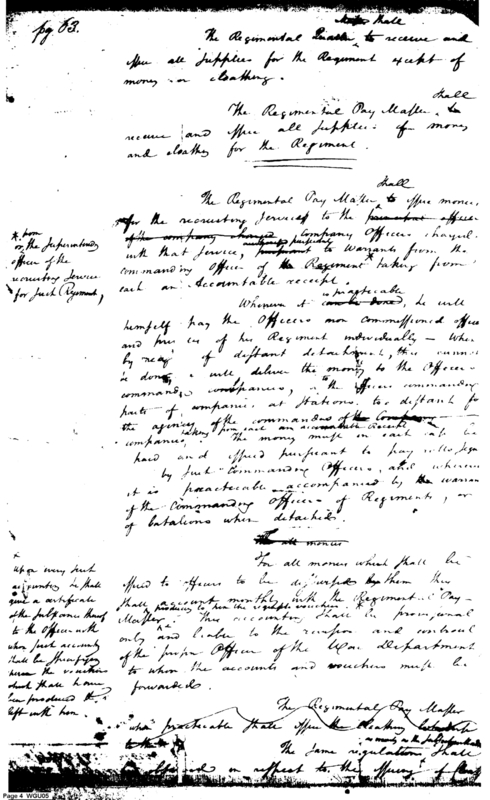 pg 63.
Master shall
The Regimental Quarter to receive and
issue all Supplies for the Regiment except of
money or cloathing.
shall
The Regimental Pay Master to
receive and issue all Supplies of money
and cloathes for the Regiment.
Shall
The Regimental Pay Master to issue monies
for the recruiting Service to the
of the company charged company Officers charged
with that Service, pursuant to Warrants from the
commanding Officer of the Regiment * taking from
each an Accountable receipt.
* from
or the Superintending
officer of the
recruiting Service
for such Regiment,
practicable
Whenever it can be done, he will
himself pay the Officers non commissioned officers
and privates of his Regiment individually - When
by reason of distant detachment, this cannot
be done, he will deliver the money to the Officers
commanding companies, or to the officers commanding
parts of companies at Stations too distant for
the agencies of the commandants of the Companies
taking from each an accountable Receipt
companies. The money must in each case be
paid and issued pursuant to pay rolls signed
by such Commanding Officers, and wherever
it is practicable accompanied by the warrant
of the Commanding Officers of Regiments, or
of batalions when detached.
The all monies
For all monies which shall be
issued to officers to be disbursed by them they
shall account monthly with the Regimental Pay
producing to him the vouchers *
Master. This accounting shall be provisional
only and liable to the revision and controul
of the proper Officer of the War Department
to whom the accounts and vouchers must be
forwarded.
*
Upon every such
accounting he shall
give a certificate
of the substance thereof
to the Officer with
whom such accounts
shall be specifying
therein the vouchers
which shall have
been produced &
left with him.
The Regimental Pay Master
when practicable shall issue the cloathing
to the
The same regulations shall
be observed in respect to the issuing of
Page 4 WGU05